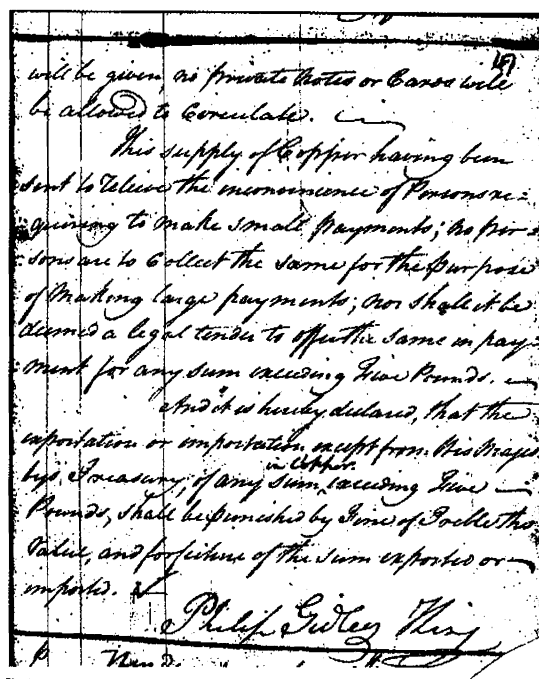 will be given, no private Notes or Cards will
be allowed to Circulate.
This supply of Copper having been
sent to relieve the inconvenience of Persons re=
quiring to make small payments; no per=
sons are to Collect the same for the purpose
of Making large payments; nor shall it be
deemed a legal tender to offer the same in pay=
ment for any sum exceeding Five Pounds.
And it is hereby declared, that the
exportation or importation except from His Majes
tys. Treasury, of any Sum in Copper exceeding Five
Pounds, shall be punished by Fine of Treble the
Value, and forfeiture of the sum exported or
imported.
Philip Gidley King